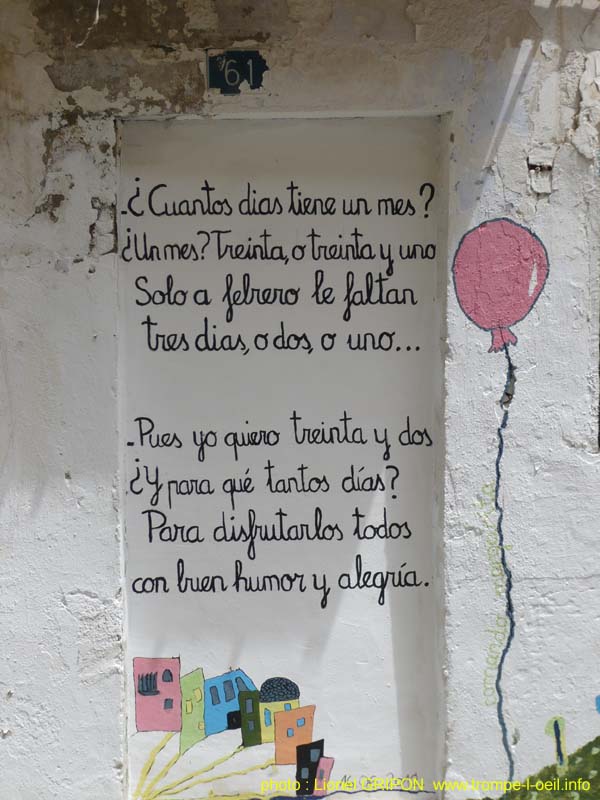 61
-¿Cuantos dias tiene un mes?
¿Un mes? Treinta, o treinta y uno
Solo a febrero le faltan
tres dias, o dos, o uno...
-Pues yo quiero treinta y dos
¿Y para qué tantos días?
Para disfrutarlos todos
con buen humor y alegría.
photo : Lionel GRIPON www.trompe-l-oeil.info